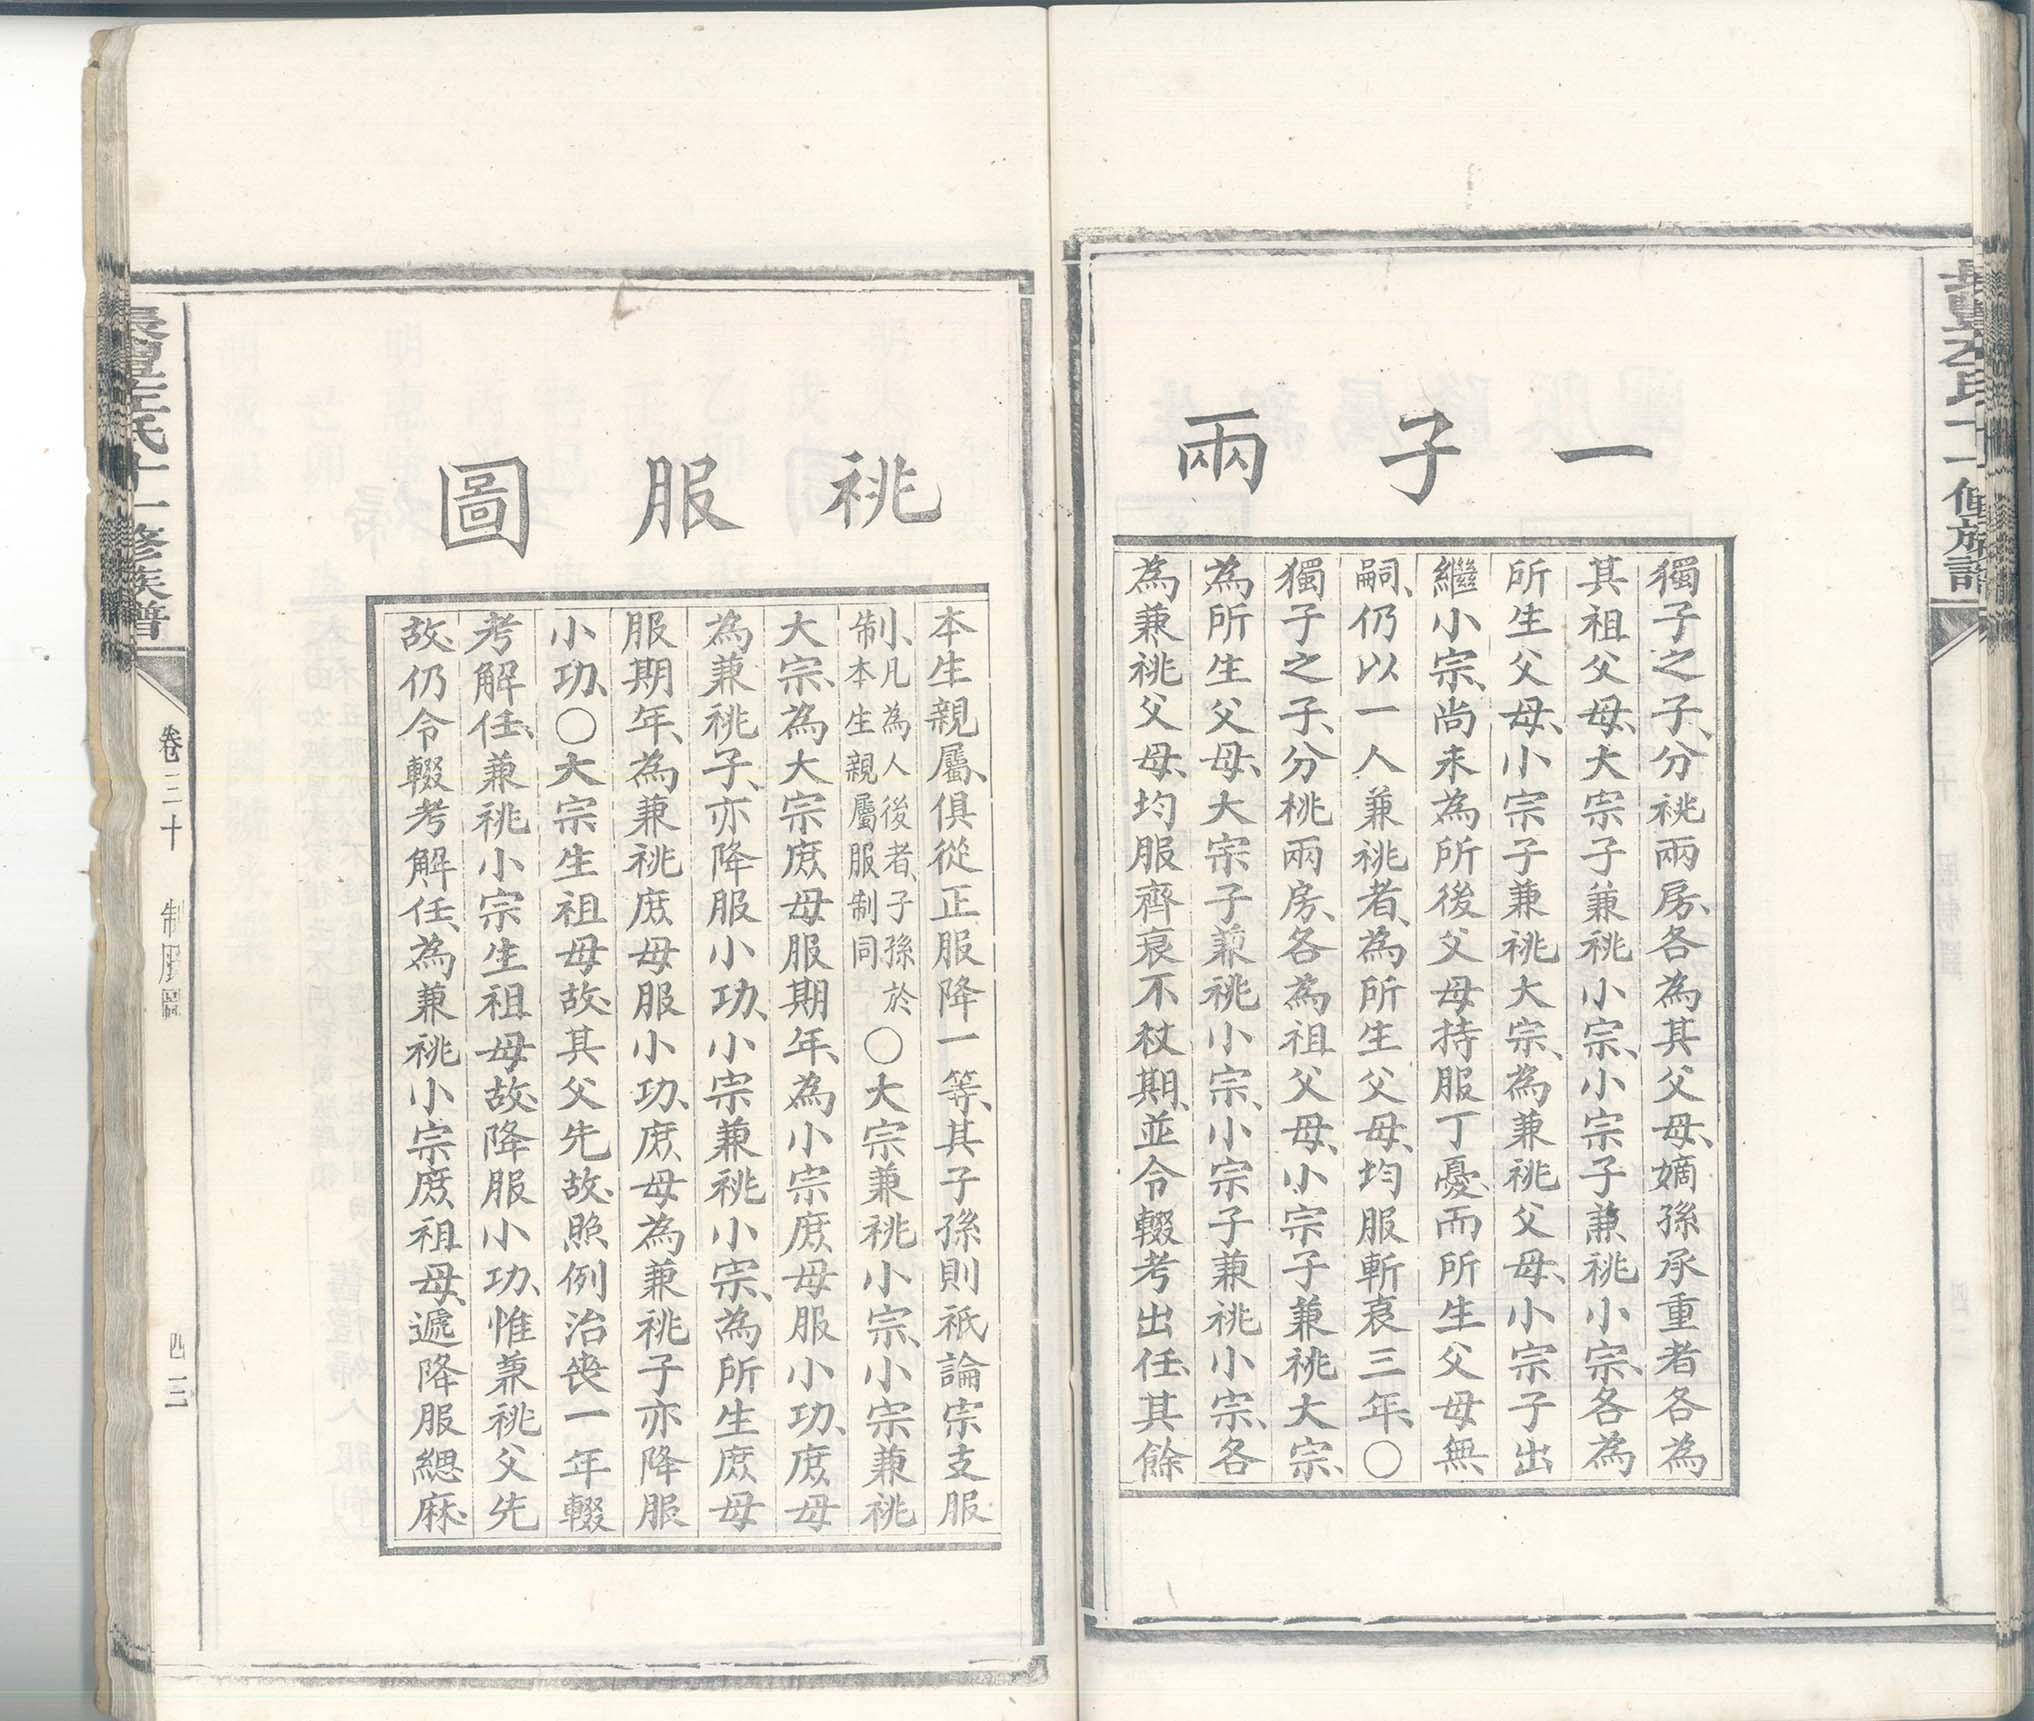 一子兩
獨子之子、分祧兩房、各為其父母、嫡孫承重者各為
其祖父母、大宗子兼祧小宗、小宗子兼祧小宗、各為
所生父母、小宗子兼祧大宗、為兼祧父母、小宗子出
繼小宗、尚未為所後父母持服丁憂、而所生父母無
嗣、仍以一人兼祧者、為所生父母、均服斬衰三年、○
獨子之子、分祧兩房、各為祖父母、小宗子兼祧大宗、
為所生父母、大宗子兼祧小宗、小宗子兼祧小宗、各
為兼祧父母、均服齊衰不杖期、並令輟考出任、其餘
祧服圖
本生親屬、俱從正服降一等、其子孫則祇論宗支服
制、凡為人後者、子孫於本生親屬服制同○大宗兼祧小宗、小宗兼祧
大宗、為大宗庶母服期年、為小宗庶母服小功、庶母
為兼祧子、亦降服小功、小宗兼祧小宗、為所生庶母
服期年、為兼祧庶母服小功、庶母為兼祧子亦降服
小功、○大宗生祖母故、其父先故、照例治喪一年輟
考解任、兼祧小宗生祖母故、降服小功、惟兼祧父先
故、仍令輟考解任、為兼祧小宗庶祖母、遞降服緦麻、
氏十一修族譜
卷三十
制服圖
四三